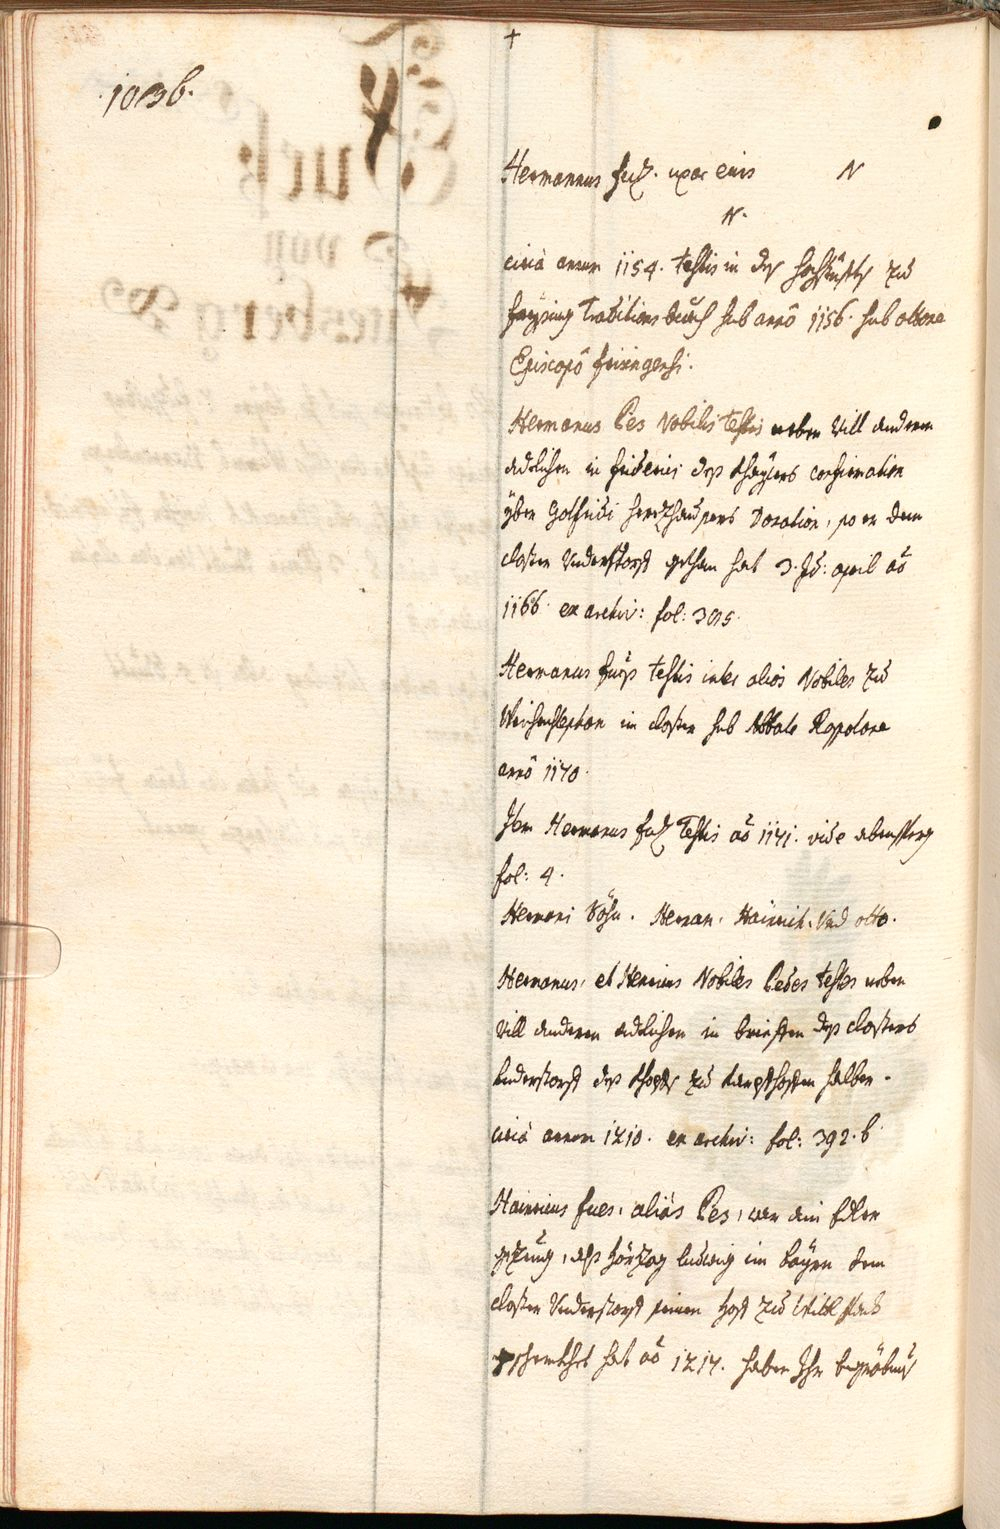 +
1036.
Hermannus fuß. uxor eius N
N.
circà annum 1154. testis in deß hochstüffts zu
freysing traditions buech sub annô 1156. sub ottone
Episcopô frisingensi.
Hermanus Pes Nobilis testis neben vill anderen
adelichen in friderici deß Khaysers confirmation
yber Gotfridi Donation, so er dem
closter Understorff gethan hat 3. april aõ
1166. ex archiv: fol: 395.
Hermanus fueß testis inter alios Nobiles zu
Weichenstephan im closter sub Abbate Rapotone
annô 1170.
Item Hermanus fuß Testis aõ 1171. vide abensperg
fol: 4.
Hermani Söhn. Herman, Hainrich, Und otto.
Hermanus, et Henricus Nobiles Pedes testes neben
vill anderen adelichen in brieffen deß closters
Understorff deß zu halber.
circà annum 1210. ex archiv: fol: 392. b
Hainricus fues, aliàs Pes, war ein Edler
gezeug, alß hörzog ludwig im bayrn dem
closter Understorff seinen hoff zu
geschenkhet hat aõ 1217. haben Ihr begröbnuß